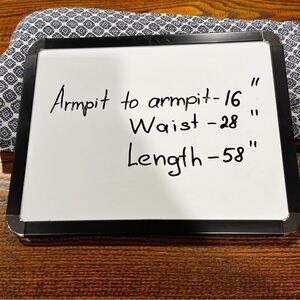 Armpit to armpit-16"
Waist -28"
Length-58"